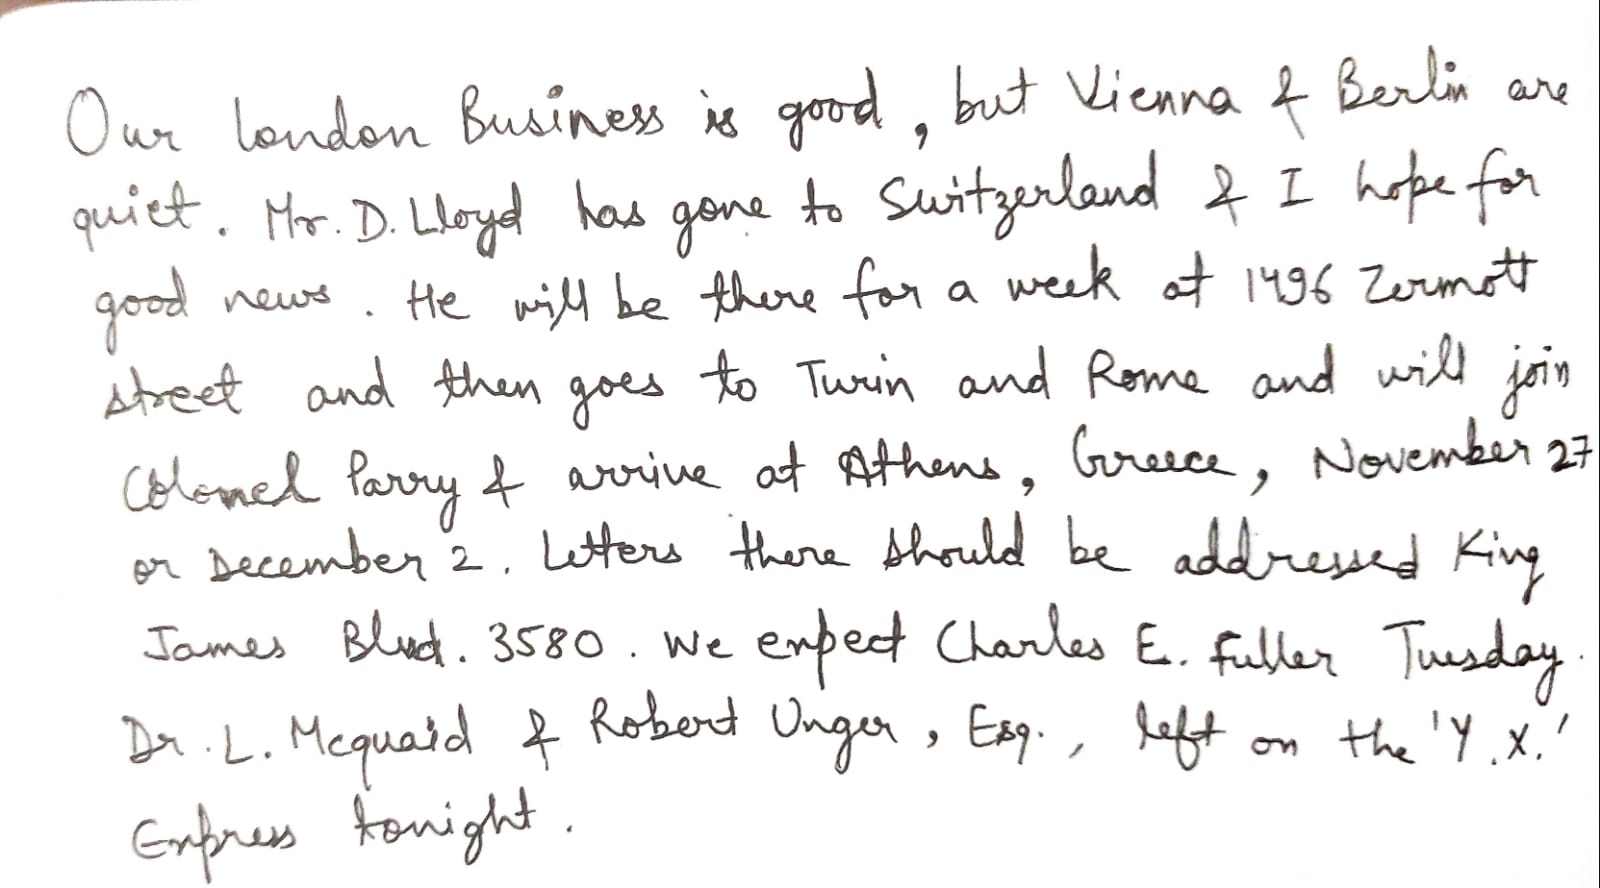 Our London Business is good, but Vienna & Berlin are
quiet. Mr. D. Lloyd has gone to Switzerland & I hope for
good news. He will be there for a week at 1496 Zermott
street and then goes to Turin and Rome and will join
Colonel Parry & arrive at Athens, Greece, November 27
or December 2. Letters there should be addressed King
James Blvd. 3580. We expect Charles E. Fuller Tuesday.
Dr. L. Mcquaid & Robert Unger, Esq., left on the 'Y.X.'
Express tonight.